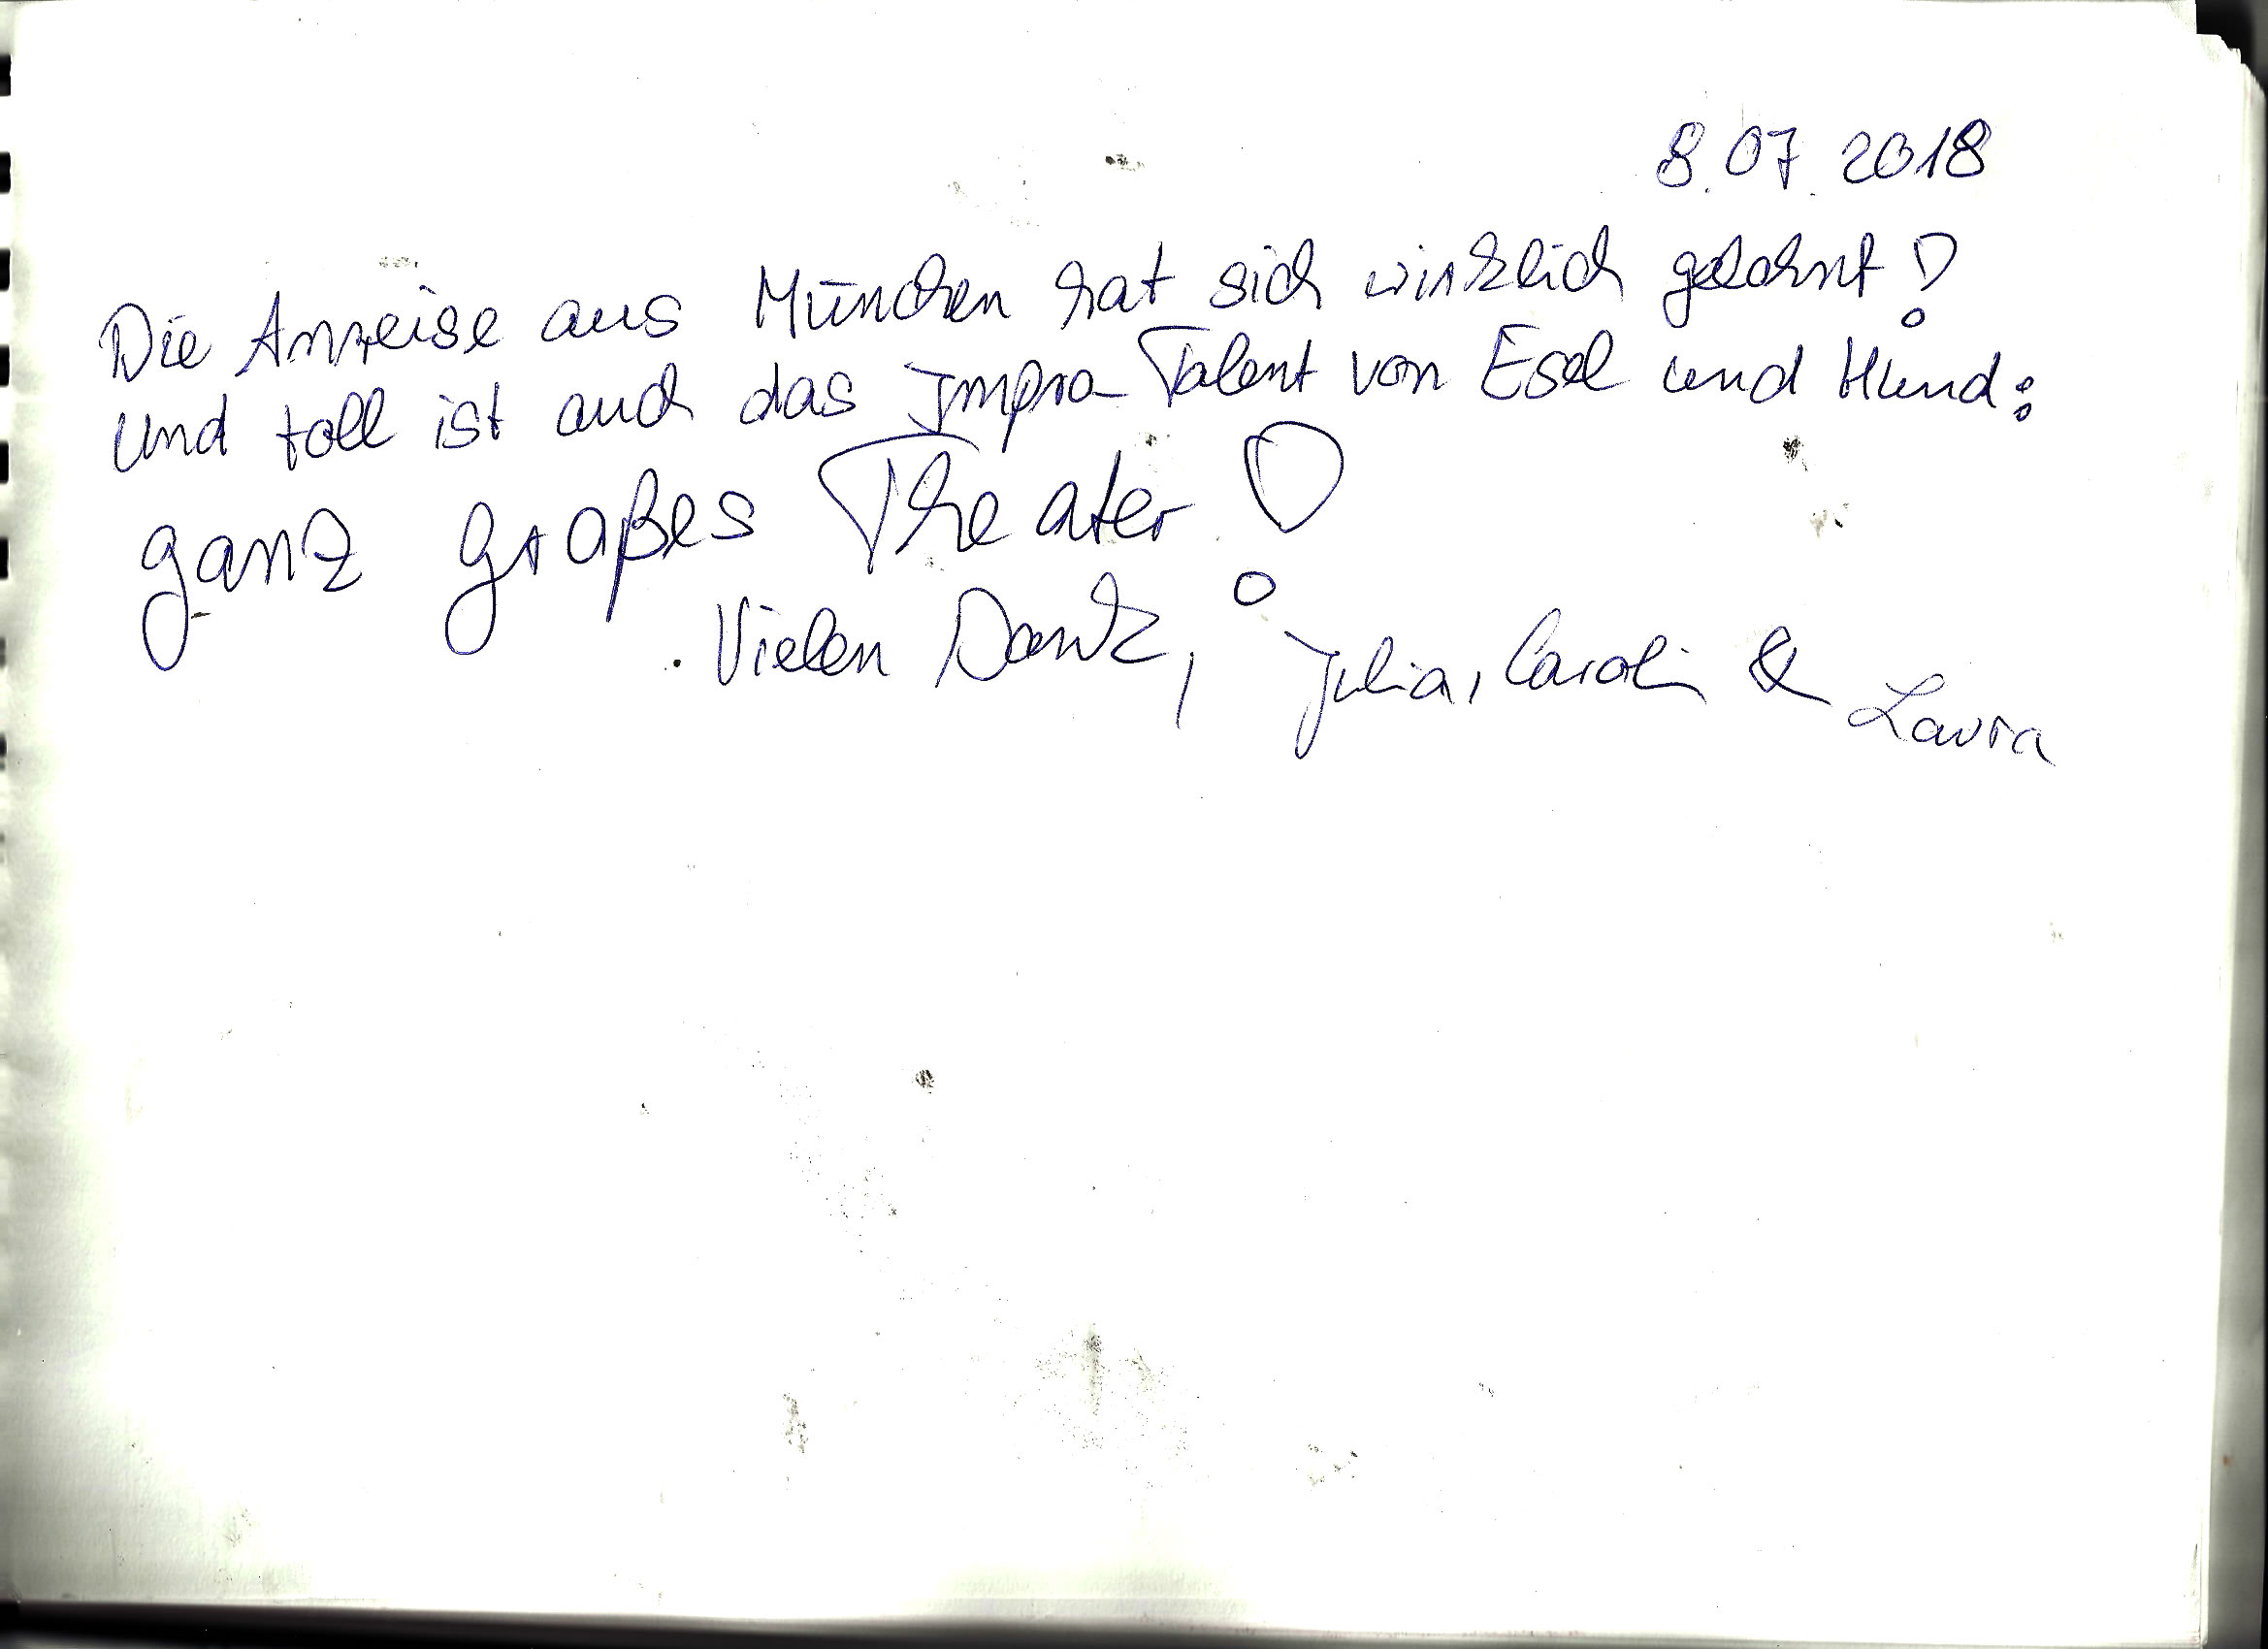 8.07.2018
Die Anreise aus München hat sich wirklich gelohnt!
Und toll ist auch das Impro-Talent von Esel und Hund:
ganz großes Theater!
Vielen Dank, Julia, Carolin & Laura